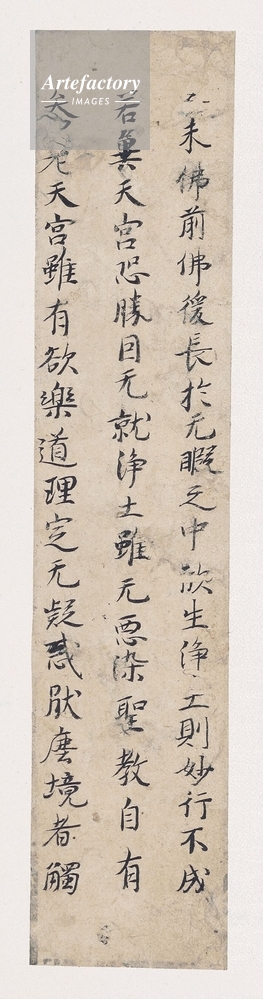 未佛前佛後長於无暇之中欲生浄土則妙行不成
若冀天宮恐勝因无就浄土雖无惡染聖教自有
天宮雖有欲樂道理定无疑惑厭塵境者觸
Artefactory
IMAGES